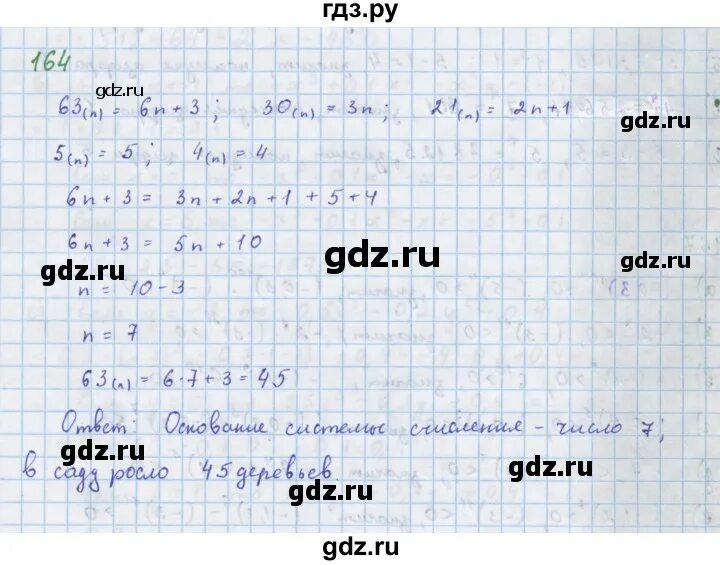 гдз.ру
164
gdz.ru
63(n) = 6n + 3 ; 30(n) = 3n ; 21(n) = 2n + 1
gdz.ru
5(n) = 5 ; 4(n) = 4
6n + 3 = 3n + 2n + 1 + 5 + 4
6n + 3 = 5n + 10
gdz.ru
gdz.ru
gdz.ru
n = 10 - 3
n = 7
63(n) = 6·7 + 3 = 45
Ответ: Основание системы счисления - число 7;
gdz.ru
gdz.ru
в саду росло 45 деревьев.
gdz.ru
gdz.ru